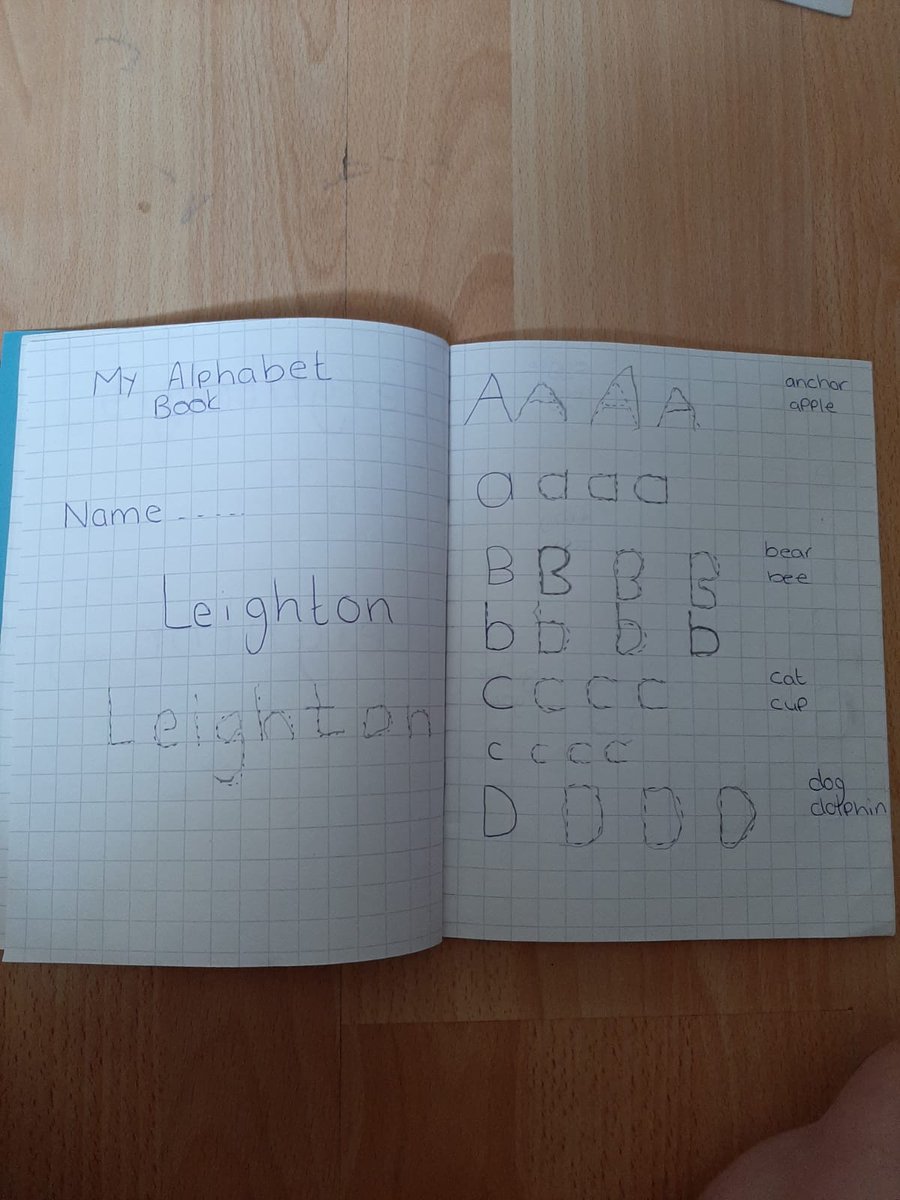 My Alphabet
Book
Name.....
Leighton
Leighton
A A A A anchor
apple
a a a a
B B B B bear
bee
b b b b
C C C C cat
cup
c c c c
D D D D dog
dolphin